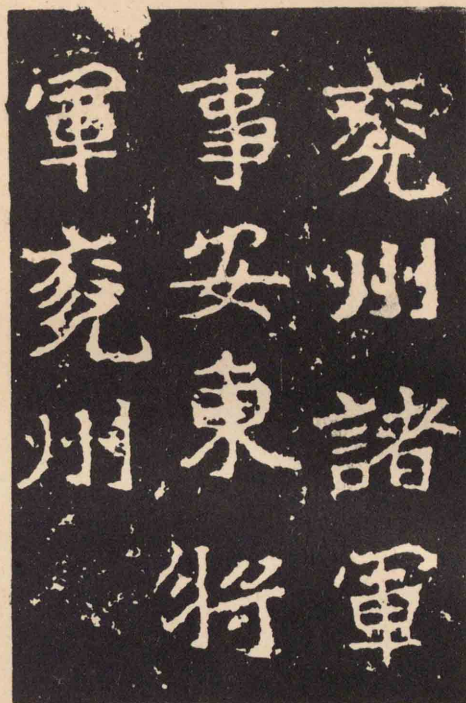 兗州諸軍
事安東將
軍兗州